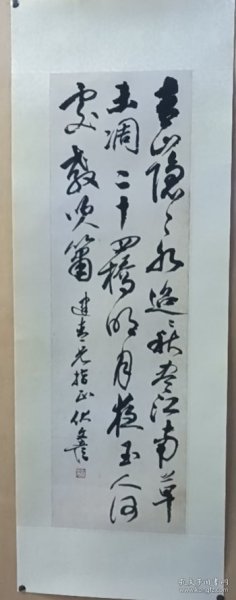 青山隱〻水迢〻秋盡江南草
未凋二十四橋明月夜玉人何
處教吹簫 建春兄指正 伏文彦
孔夫子旧书网